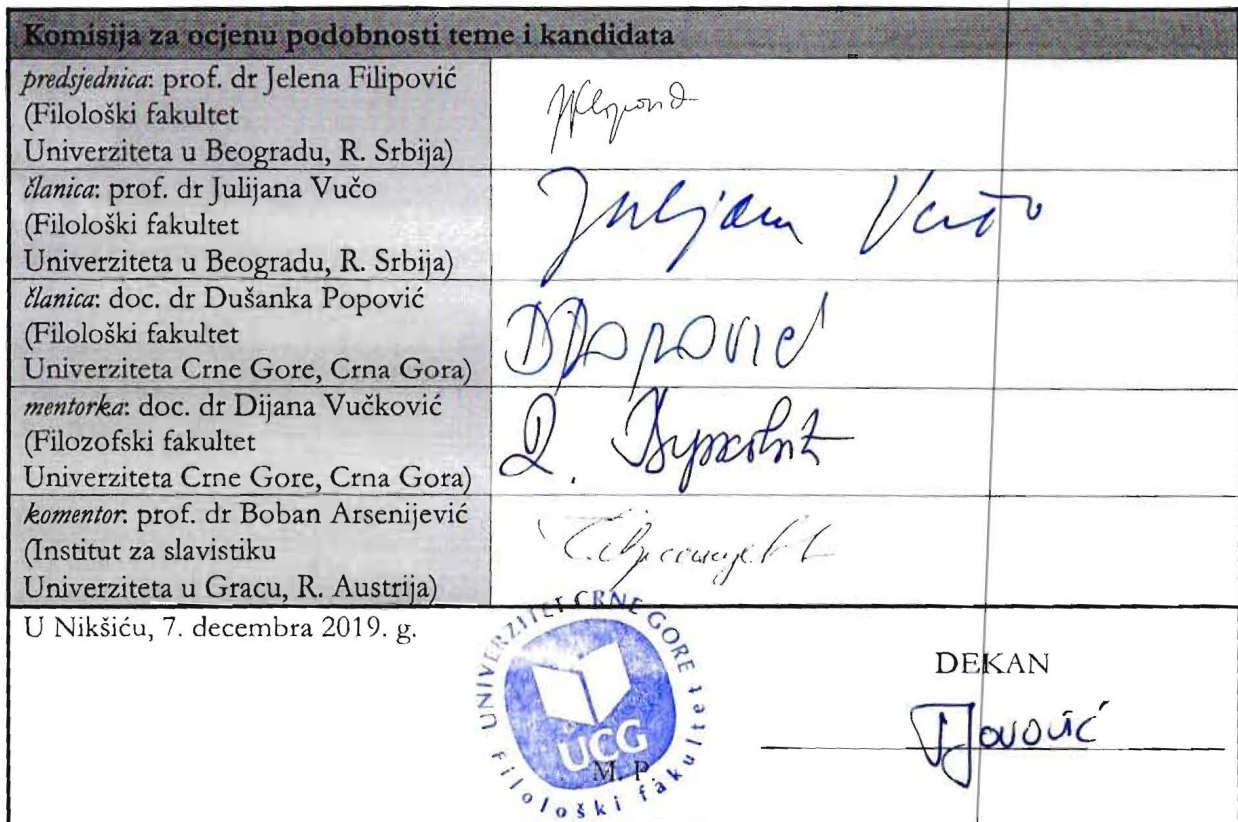 Komisija za ocjenu podobnosti teme i kandidata
predsjednica: prof. dr Jelena Filipović
(Filološki fakultet
Univerziteta u Beogradu, R. Srbija)
članica: prof. dr Julijana Vučo
(Filološki fakultet
Univerziteta u Beogradu, R. Srbija)
Julijana Vučo
članica: doc. dr Dušanka Popović
(Filološki fakultet
Univerziteta Crne Gore, Crna Gora)
DPopović
mentorka: doc. dr Dijana Vučković
(Filozofski fakultet
Univerziteta Crne Gore, Crna Gora)
komentor: prof. dr Boban Arsenijević
(Institut za slavistiku
Univerziteta u Gracu, R. Austrija)
U Nikšiću, 7. decembra 2019. g.
UNIVERZITET CRNE GORE
UCG
Filološki fakultet
M. P.
DEKAN